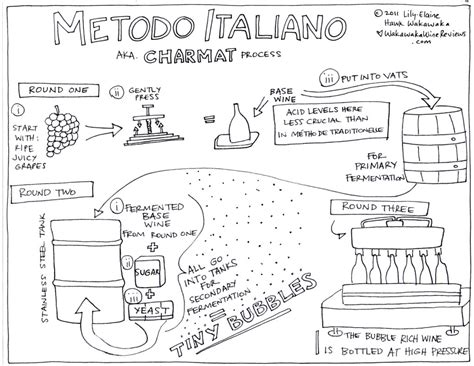 METODO ITALIANO
AKA. CHARMAT PROCESS
© 2011 Lily-Elaine
Hawk Wakawaka
WakawakaWineReviews
.com
ROUND ONE
i
START
WITH:
RIPE
JUICY
GRAPES
ii GENTLY
PRESS
BASE
WINE
ACID LEVELS HERE
LESS CRUCIAL THAN
IN METHODE TRADITIONELLE
iii PUT INTO VATS
FOR
PRIMARY
FERMENTATION
ROUND TWO
STAINLESS STEEL TANK
i FERMENTED
BASE
WINE
FROM ROUND ONE
+
ii SUGAR
+
iii YEAST
ALL GO
INTO TANKS
FOR
SECONDARY
FERMENTATION
=
TINY BUBBLES
ROUND THREE
THE BUBBLE RICH WINE
IS BOTTLED AT HIGH PRESSURE